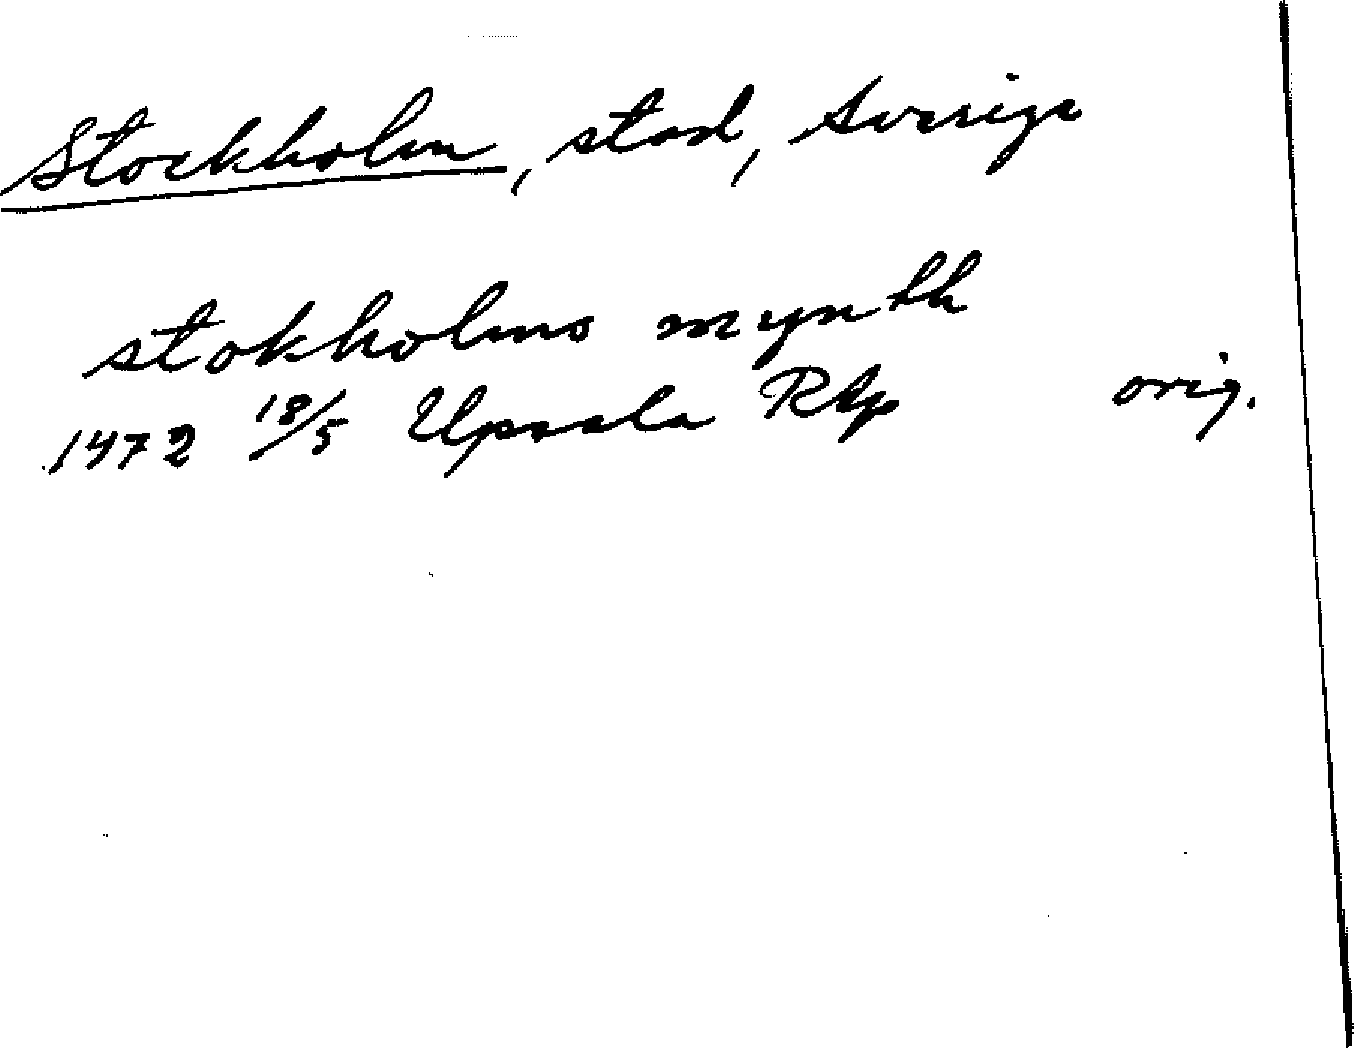 Stockholm, stad, Sverige
stokholms mynth
1472 18/5 Upsala RAp orig.